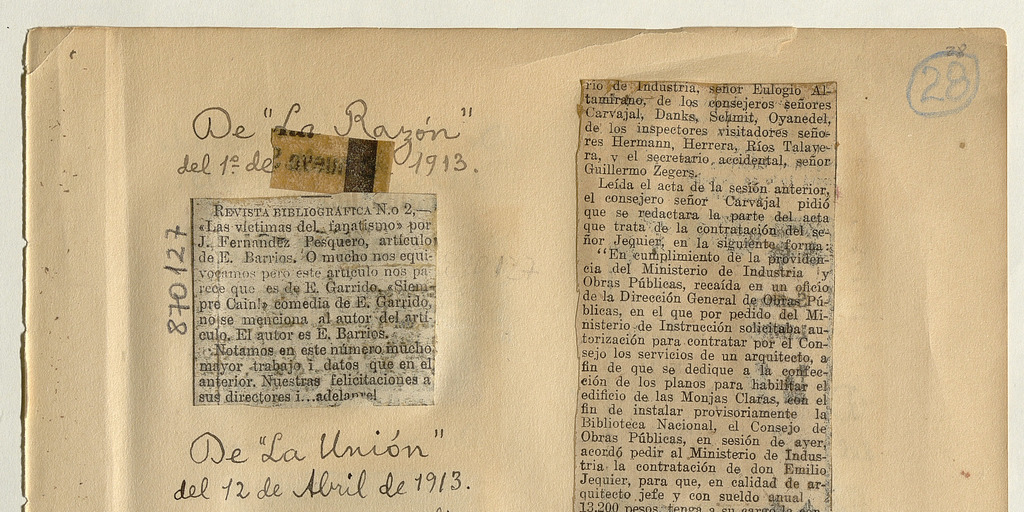 28
28
De "La Razón"
del 1º de 1913.
870127
REVISTA BIBLIOGRAFICA N.o 2,—
«Las víctimas del fanatismo» por
J. Fernandez Pesquero, artículo
de E. Barrios. O mucho nos equi-
vogamos pero este artículo nos pa-
rece que es de E. Garrido. «Siem-
pre Cain!» comedia de E. Garrido,
no se menciona al autor del artí-
culo. El autor es E. Barrios.
Notamos en este número mucho
mayor trabajo i datos que en el
anterior. Nuestras felicitaciones a
sus directores i...adelante!
De "La Unión"
del 12 de Abril de 1913.
rio de Industria, señor Eulogio Al-
tamirano, de los consejeros señores
Carvajal, Danks, Schmit, Oyanedel,
de los inspectores visitadores seño-
res Hermann, Herrera, Ríos Talave-
ra, y el secretario accidental, señor
Guillermo Zegers.
Leída el acta de la sesión anterior,
el consejero señor Carvajal pidió
que se redactara la parte del acta
que trata de la contratación del se-
ñor Jequier, en la siguiente forma:
"En cumplimiento de la providen-
cia del Ministerio de Industria y
Obras Públicas, recaída en un oficio
de la Dirección General de Obras Pú-
blicas, en el que por pedido del Mi-
nisterio de Instrucción solicitaba au-
torización para contratar por el Con-
sejo los servicios de un arquitecto, a
fin de que se dedique a la confec-
ción de los planos para habilitar el
edificio de las Monjas Claras, con el
fin de instalar provisoriamente la
Biblioteca Nacional, el Consejo de
Obras Públicas, en sesión de ayer,
acordó pedir al Ministerio de Indus-
tria la contratación de don Emilio
Jequier, para que, en calidad de ar-
quitecto jefe y con sueldo anual
13,200 pesos, tenga a su cargo la con-